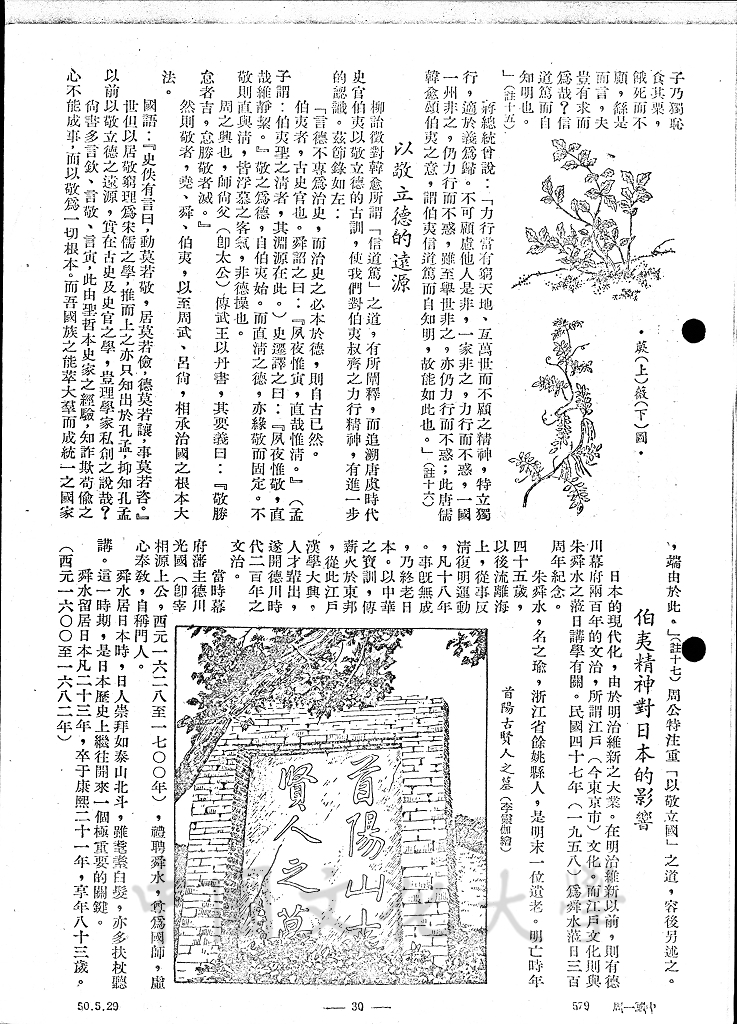 子乃獨恥
食其粟，
餓死而不
顧，繇是
而言，夫
豈有求而
為哉？信
道篤而自
知明也。
」（註十五）
蔣總統曾說：「力行當有窮天地、亙萬世而不顧之精神，特立獨
行，適於義為歸。不可顧慮他人是非，一家非之，力行而不惑，一國
一州非之，仍力行而不惑，雖至舉世非之，亦仍力行而不惑；此唐儒
韓愈頌伯夷之意，謂伯夷信道篤而自知明，故能如此也。」（註十六）
以敬立德的遠源
柳詒徵對韓愈所謂「信道篤」之道，有所闡釋，而追溯唐虞時代
史官伯夷以敬立德的古訓，使我們對伯夷叔齊之力行精神，有進一步
的認識。茲節錄如左：
「言德不專為治史，而治史之必本於德，則自古已然。
伯夷者，古史官也。舜詔之曰：『夙夜惟寅，直哉惟清。』（孟
子謂：伯夷聖之清者，其淵源在此。）史遷譯之曰：『夙夜惟敬，直
哉維靜絜。』敬之為德，自伯夷始。而直清之德，亦緣敬而固定。不
敬則直與清，皆浮慕之客氣，非德操也。
周之興也，師尚父（卽太公）傳武王以丹書，其要義曰：『敬勝
怠者吉，怠勝敬者滅。』
然則敬者，堯、舜、伯夷，以至周武、呂尙，相承治國之根本大
法。
國語：『史佚有言曰，動莫若敬，居莫若儉，德莫若讓，事莫若咨。』
世但以居敬窮理為宋儒之學，推而上之亦只知出於孔孟，抑知孔孟
以前以敬立德之遠源，實在古史及史官之學，豈理學家私創之說哉？
尙書多言欽、言敬、言寅，此由聖哲本史家之經驗，知詐欺苟儉之
心不能成事，而以敬為一切根本。而吾國族之能萃大羣而成統一之國家
．蕨（上）薇（下）圖．
，端由於此。」（註十七）周公特注重「以敬立國」之道，容後另述之。
伯夷精神對日本的影響
日本的現代化，由於明治維新之大業。在明治維新以前，則有德
川幕府兩百年的文治，所謂江戶（今東京市）文化。而江戶文化則與
朱舜水之蒞日講學有關。民國四十七年（一九五八）為舜水蒞日三百
周年紀念。
朱舜水，名之瑜，浙江省餘姚縣人，是明末一位遺老。明亡時年
四十五歲，
以後流離海
上，從事反
清復明運動
，凡十八年
。事旣無成
，乃終老日
本。以中華
之寶訓，傳
薪火於東邦
，從此江戶
漢學大興，
人才輩出，
遂開德川時
代二百年之
文治。
當時幕
府藩主德川
光國（卽宰
相源上公，西元一六二八至一七〇〇年），禮聘舜水，尊為國師，虛
心奉教，自稱門人。
舜水居日本時，日人崇拜如泰山北斗，雖耄耋白髮，亦多扶杖聽
講。這一時期，是日本歷史上繼往開來一個極重要的關鍵。
舜水留居日本凡二十三年，卒于康熙二十一年，享年八十三歲。
（西元一六〇〇至一六八二年）
首陽古賢人之墓（李靈伽繪）
首陽山古
賢人之墓
中國文化大學
50.5.29
— 30 —
579
中國一周